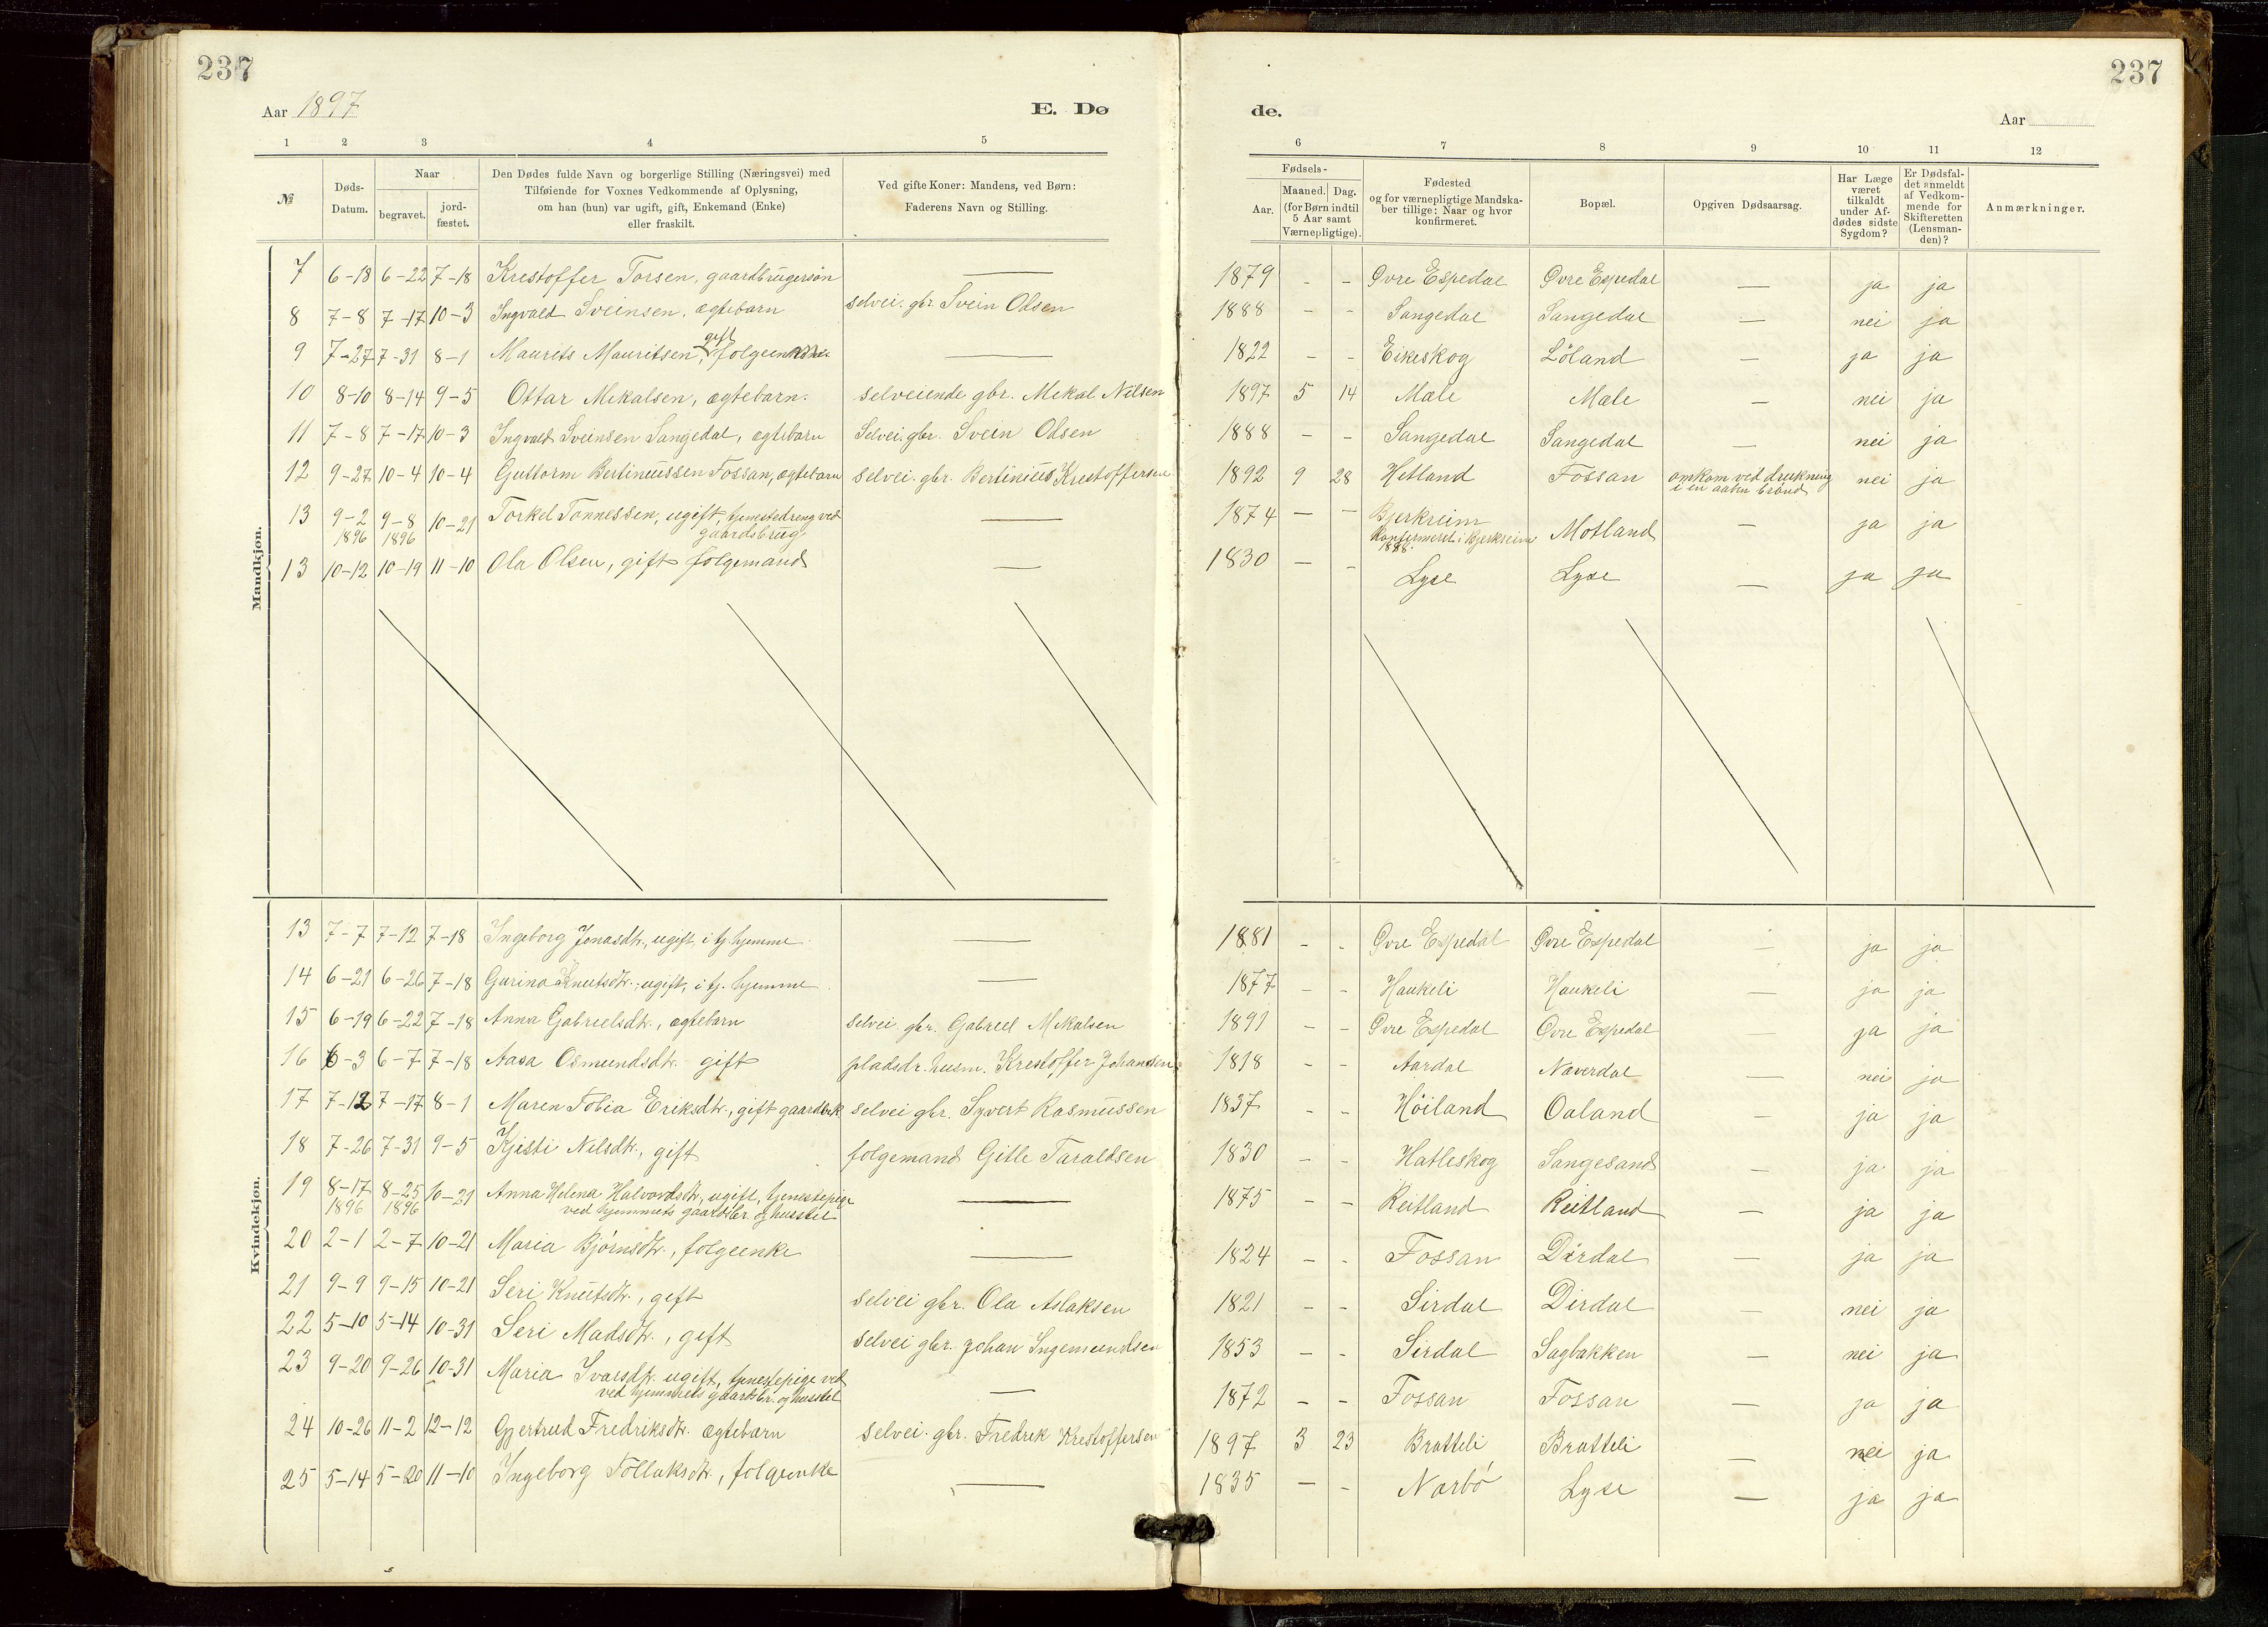 237
237
Aar 1897
E. Dø
de.
Aar
1 2 3 4 5 6 7 8 9 10 11 12
№
Døds-Datum.
Naar
begravet.
jord-fæstet.
Den Dødes fulde Navn og borgerlige Stilling (Næringsvei) med
Tilføiende for Voxnes Vedkommende af Oplysning,
om han (hun) var ugift, gift, Enkemand (Enke)
eller fraskilt.
Ved gifte Koner: Mandens, ved Børn:
Faderens Navn og Stilling.
Fødsels-
Aar.
Maaned. Dag.
(for Børn indtil
5 Aar samt
Værnepligtige).
Fødested
og for værnepligtige Mandska-
ber tillige: Naar og hvor
konfirmeret.
Bopæl.
Opgiven Dødsaarsag.
Har Læge
været
tilkaldt
under Af-
dødes sidste
Sygdom?
Er Dødsfal-
det anmeldt
af Vedkom-
mende for
Skifteretten
(Lensman-
den)?
Anmærkninger.
Mandkjøn.
7 6-18 6-22 7-18 Krestoffer Torsen, gaardbrugersøn — 1879 - - Øvre Espedal Øvre Espedal — ja ja
8 7-8 7-17 10-3 Ingvald Sveinsen, ægtebarn selvei. gbr. Svein Olsen 1888 - - Sangedal Sangedal — nei ja
9 7-27 7-31 8-1 Maurits Mauritsen, gift — 1822 - - Eikeskog Löland — ja ja
10 8-10 8-14 9-5 Ottar Mekalsen, ægtebarn. selveiende gbr. Mekal Nilsen 1897 5 14 Mæle Mæle — nei ja
11 7-8 7-17 10-3 Ingvald Sveinsen Sangedal, ægtebarn Selvei. gbr. Svein Olsen 1888 - - Sangedal Sangedal — nei ja
12 9-27 10-4 10-4 Guttorm Bertiniussen Fossan, ægtebarn selvei. gbr. Bertinius Krestoffersen 1892 9 28 Hetland Fossan omkom ved drukning
i en aaben brønd nei ja
13 9-2 1896 9-8 1896 10-21 Torkel Tonnessen, ugift, tjenestedreng ved
gaardsbrug — 1874 - - Bjerkreim
Konfirmeret i Bjerkreim
1888. Motland — ja ja
13 10-12 10-19 11-10 Ola Olsen, gift folgemand — 1830 - - Lyse Lyse — ja ja
Kvindekjøn.
13 7-7 7-12 7-18 Ingeborg Jonasdtr., ugift, i tj. hjemme — 1881 - - Øvre Espedal Øvre Espedal — ja ja
14 6-21 6-26 7-18 Gurina Knutsdtr., ugift, i tj. hjemme — 1877 - - Haukeli Haukeli — ja ja
15 6-19 6-22 7-18 Anna Gabrielsdtr., ægtebarn selvei. gbr. Gabriel Mekalsen 1891 - - Øvre Espedal Øvre Espedal — ja ja
16 6-3 6-7 7-18 Aasa Osmundsdtr. gift pladsdr. husm. Krestoffer Johansen 1818 - - Aardal Næverdal — nei ja
17 7-12 7-17 8-1 Maren Tobia Eriksdtr., gift selvei gbr. Syvert Rasmussen 1837 - - Höiland Oaland — ja ja
18 7-26 7-31 9-5 Kjisti Nilsdtr., gift folgemand Gitle Taraldsen 1830 - - Hatleskog Sangesand — ja ja
19 8-17 1896 8-25 1896 10-21 Anna Helena Halvordsdtr., ugift, tjenestepige
ved hjemmets gaardsbr. og husstel — 1875 - - Reitland Reitland — ja ja
20 2-1 2-7 10-21 Maria Bjørnsdtr., folgeenke — 1824 - - Fossan Dirdal — ja ja
21 9-9 9-15 10-21 Seri Knutsdtr., gift selvei gbr. Ola Aslaksen 1821 - - Sirdal Dirdal — nei ja
22 5-10 5-14 10-31 Seri Madsdtr., gift selvei gbr. Johan Ingemundsen 1853 - - Sirdal Sagbakken — nei ja
23 9-20 9-26 10-31 Maria Ivarsdtr. ugift, tjenestepige ved
ved hjemmets gaardsbr. og husstel — 1872 - - Fossan Fossan — ja ja
24 10-26 11-2 12-12 Gjertrud Fredriksdtr. ægtebarn selvei. gbr. Fredrek Krestoffersen 1897 3 23 Bratteli Bratteli — nei ja
25 5-14 5-20 11-10 Ingeborg Tollaksdtr., folgeenke — 1835 - - Narbö Lyse — ja ja